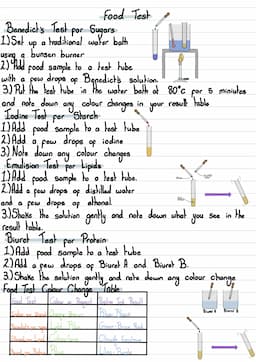 Food Test
Benedict's Test for Sugars
1) Set up a traditional water bath
using a bunsen burner
2) Add food sample to a test tube
with a few drops of Benedict's solution.
3) Put the test tube in the water bath at 80°C for 5 minutes
and note down any colour changes in your result table
Iodine Test for Starch
1) Add food sample to a test tube
2) Add a few drops of iodine
3) Note down any colour changes
Emulsion Test for Lipids
1) Add food sample to a test tube.
2) Add a few drops of distilled water
and a few drops of ethanol.
3) Shake the solution gently and note down what you see in the
result table.
Biuret Test for Protein
1) Add food sample to a test tube
2) Add a few drops of Biuret A and Biuret B.
3) Shake the solution gently and note down any colour change
Food Test Colour Change Table
Food Test